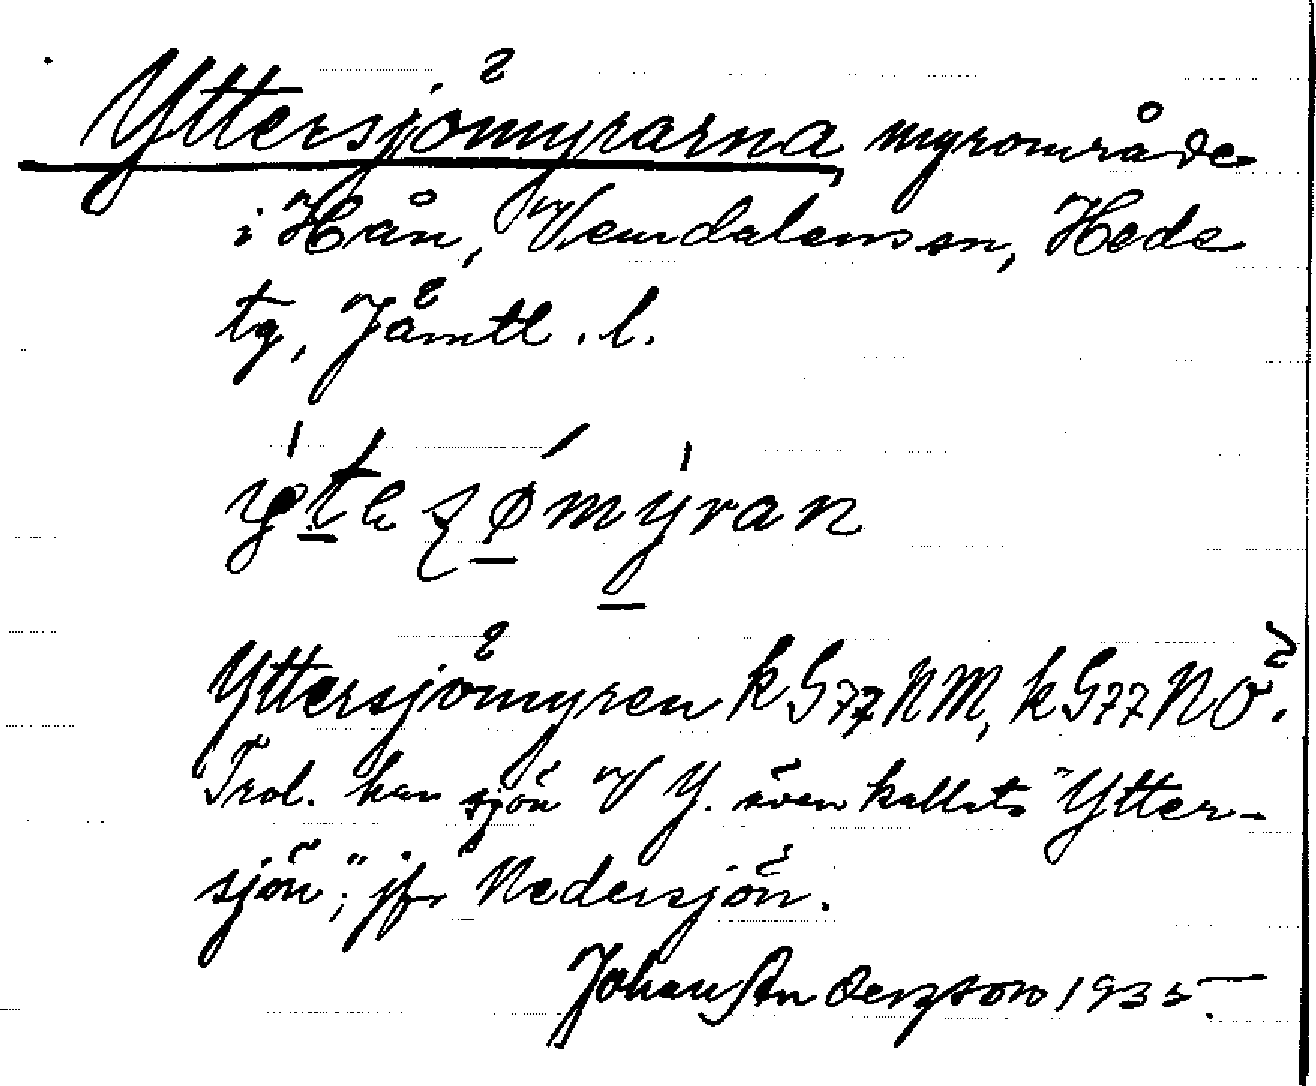 Yttersjömyrarna, myrområde
i Hån, Vemdalens sn, Hede
tg, Jämtl. l.
Yttersjömyren k G77NM, k G77NÖ.
Trol. har sjön V Y. även kallats "Ytter-
sjön"; jfr Nedersjön.
Johan Anderzson 1935